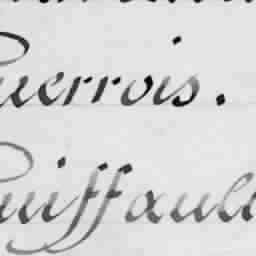 Guerrois.
Guiffaul